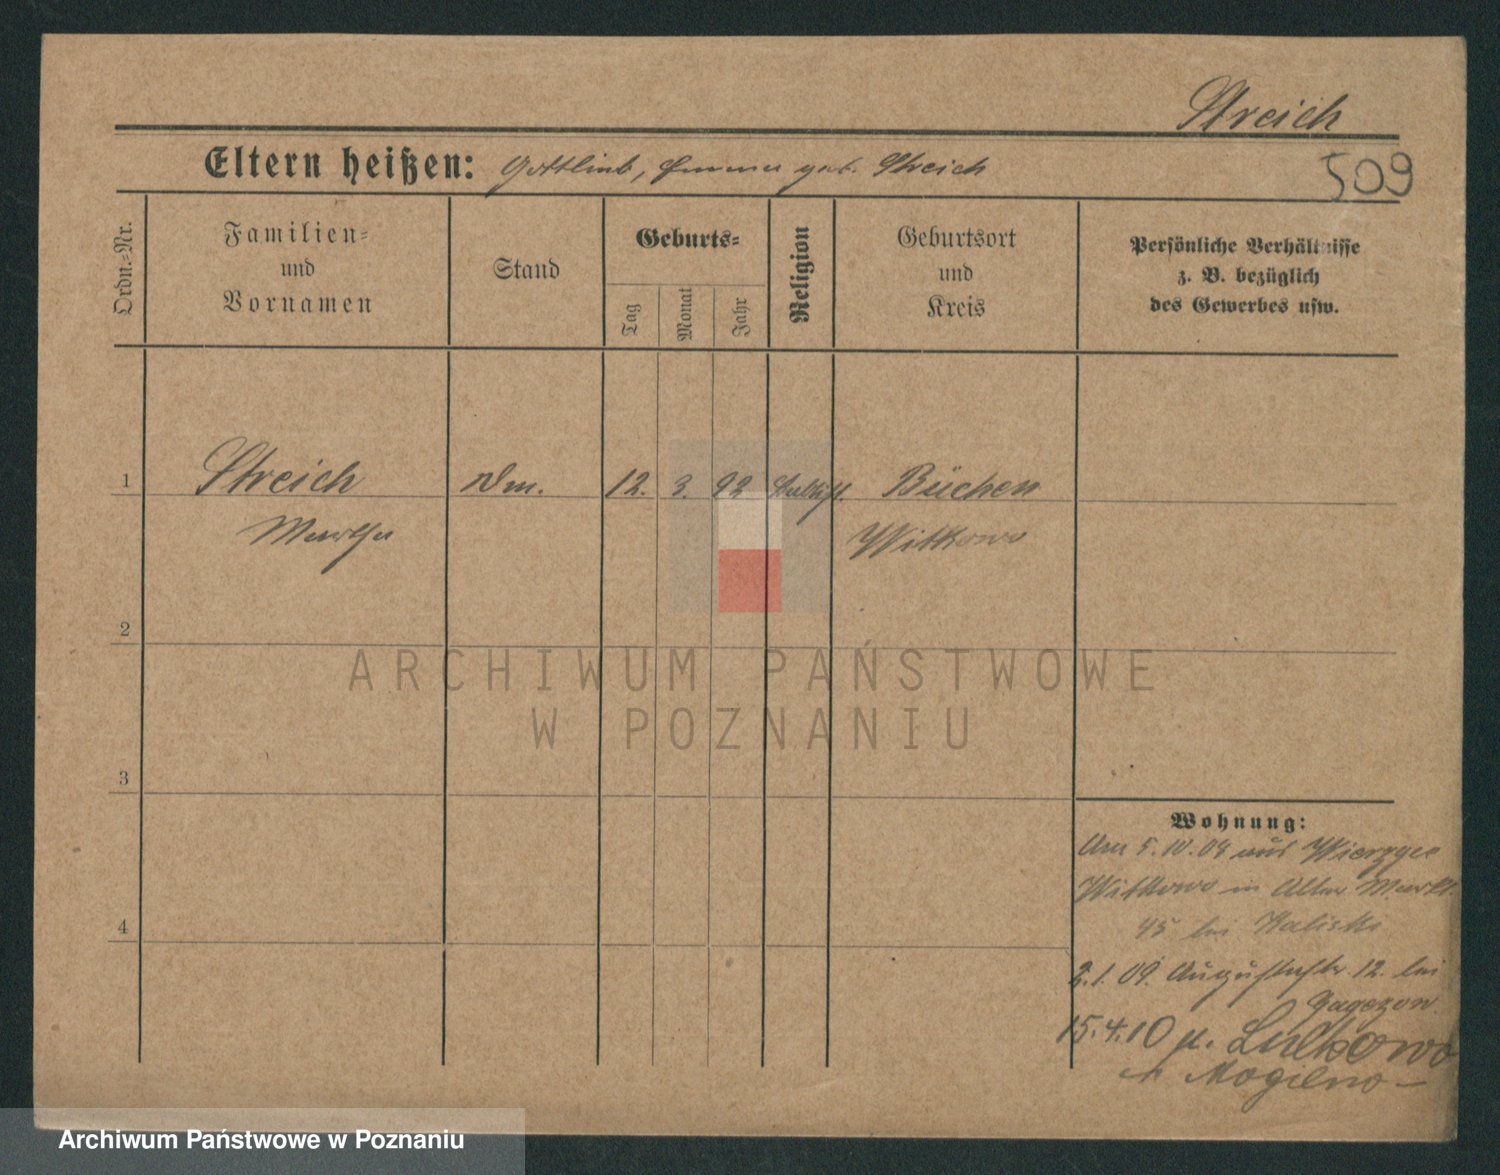 Streich
Eltern heißen: Gottlieb, Emma geb. Streich
509
Ordn.=Nr.
Familien=
und
Vornamen
Stand
Geburts=
Tag
Monat
Jahr
Religion
Geburtsort
und
Kreis
Persönliche Verhältnisse
z. B. bezüglich
des Gewerbes usw.
1
Streich
Dm.
12. 3. 92
Büchen
Martha
Witkowo
2
ARCHIWUM PAŃSTWOWE
W POZNANIU
3
4
Wohnung:
Am 5.10.09 aus
Witkowo in Alter Markt
45 bei Kaliski
2.1.09. Augustastr. 12. bei
15.4.10 n.
Mogilno
Archiwum Państwowe w Poznaniu